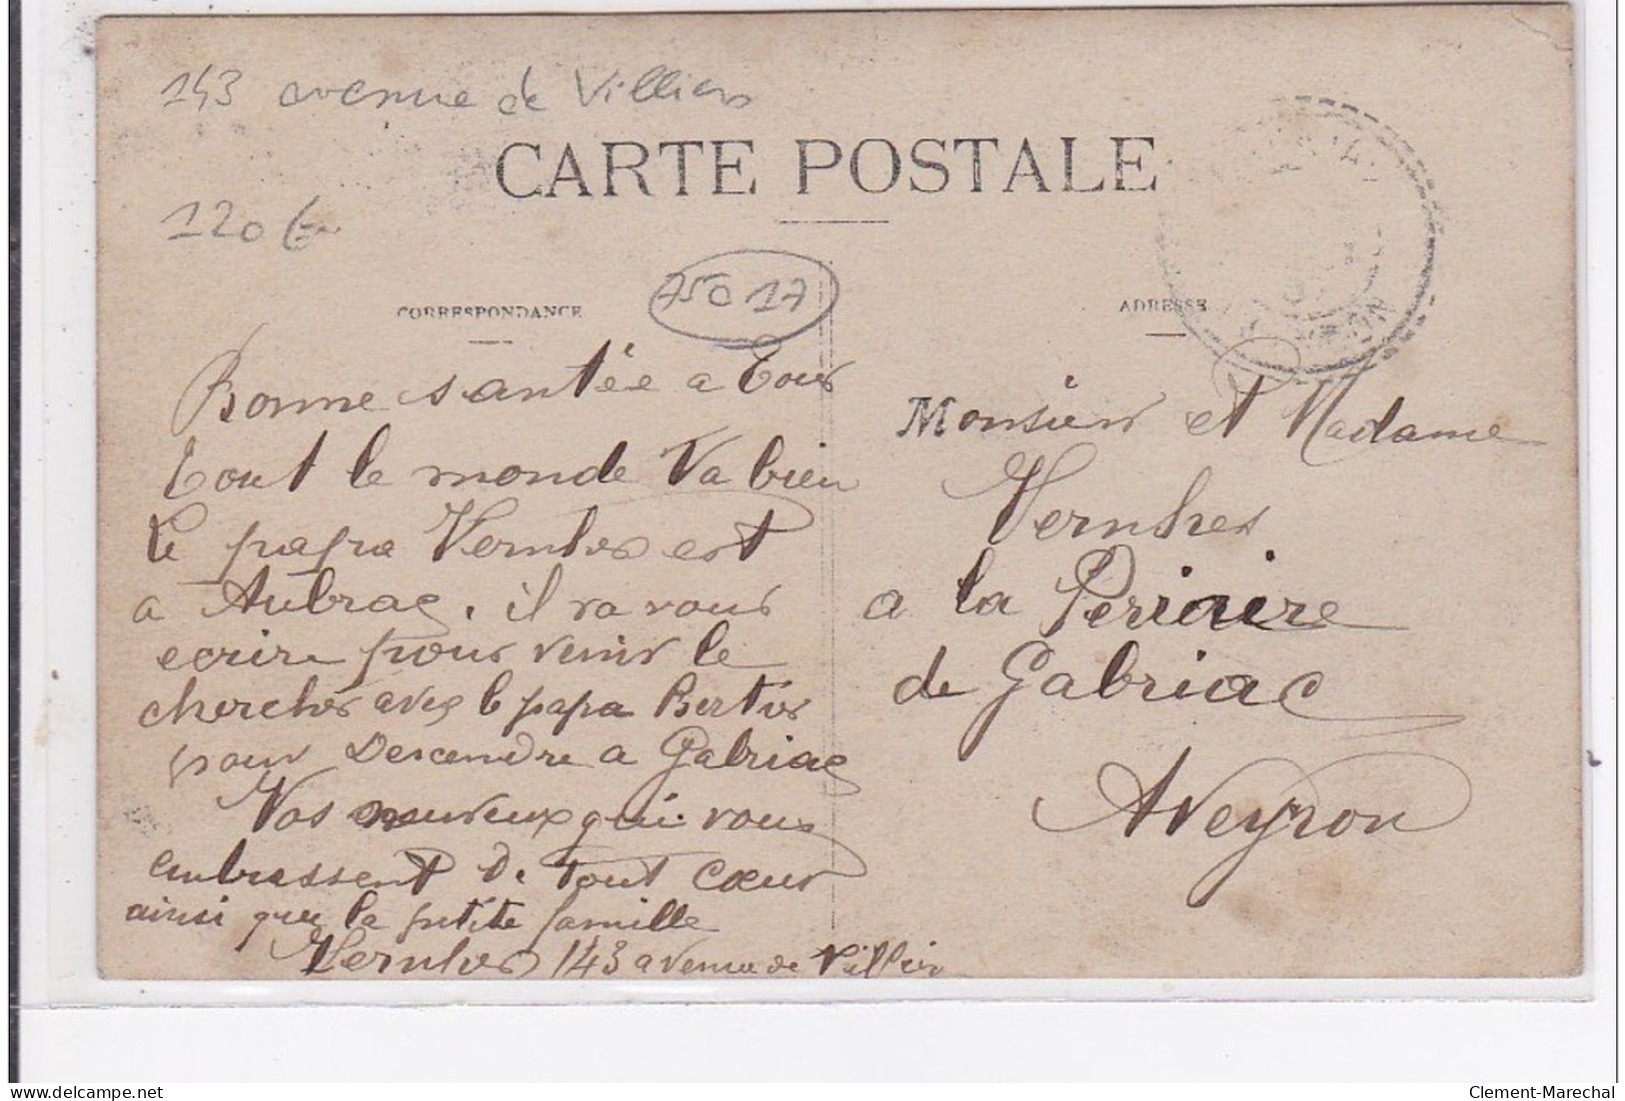 143 avenue de Villiers
CARTE POSTALE
120 €
75017
CORRESPONDANCE
Bonne santée a tous
tout le monde va bien
le papa Vernhes est
a Aubrac. il va vous
ecrire pour venir le
chercher avec le papa Bertier
pour Descendre a Gabriac
Vos neuveux qui vous
embrassent De tout cœur
ainsi que la petite famille
Vernhes 143 avenue de Villier
ADRESSE
Monsieur et Madame
Vernhes
a la Periaire
de Gabriac
Aveyron
Clement-Marechal